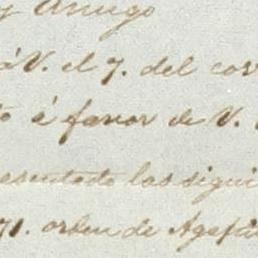 y Amigo
á V. el 7. del cor
to á favor de V.
esentado las sigui
71. orden de Agapi